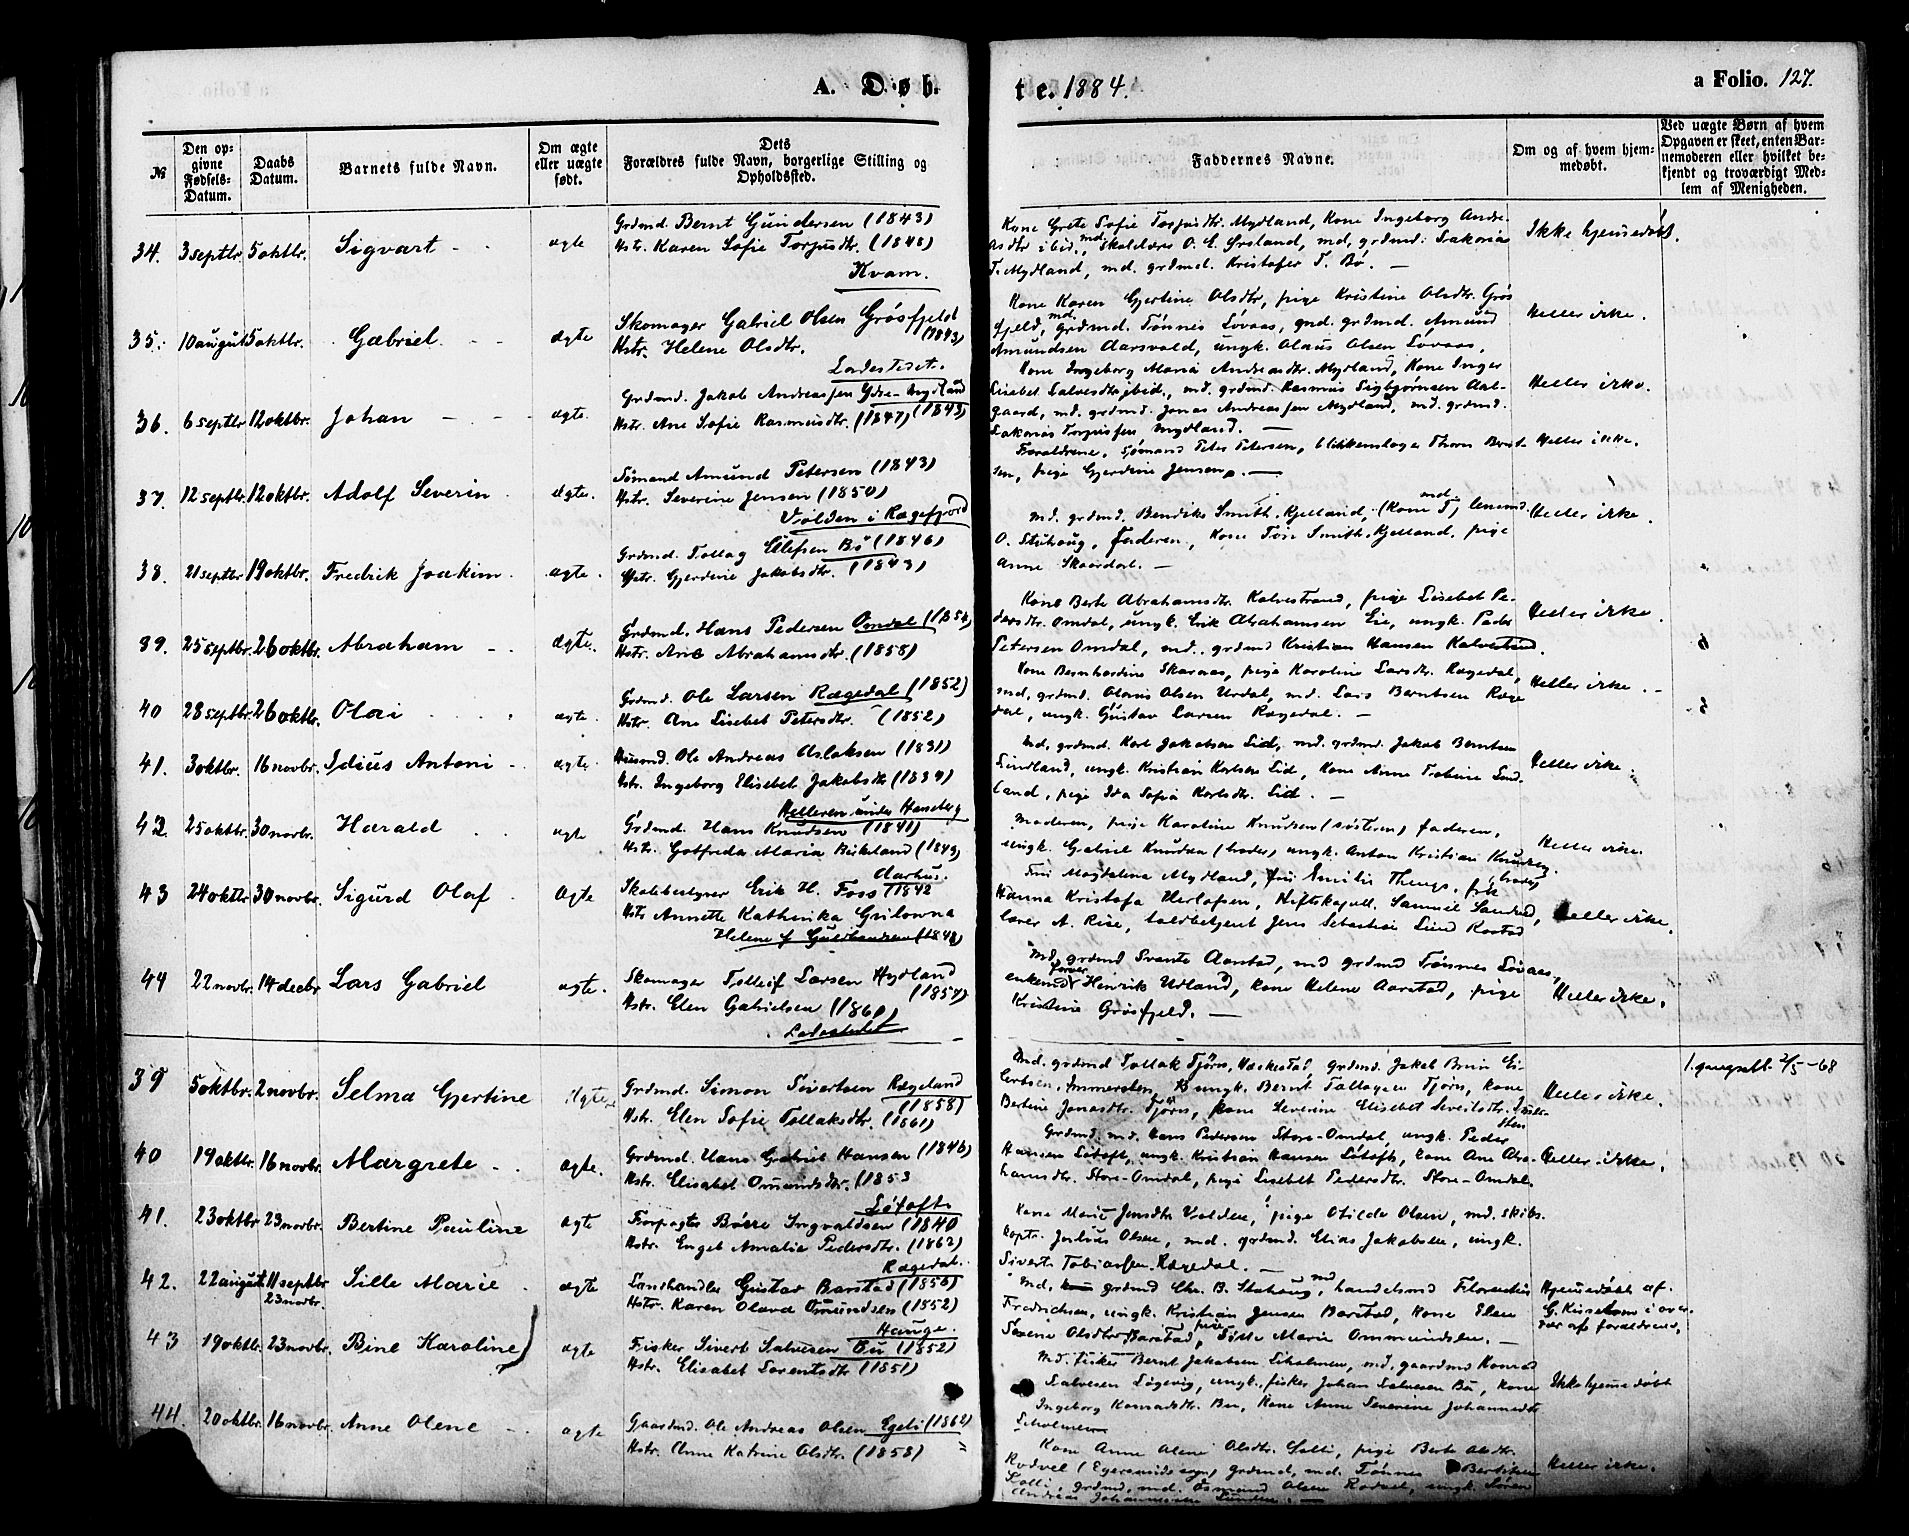 A. Døb
te. 1884.
a Folio. 127.
№
Den opgivne Fødsels-Datum.
Daabs Datum.
Barnets fulde Navn.
Om ægte eller uægte født.
Dets Forældres fulde Navn, borgerlige Stilling og Opholdssted.
Faddernes Navne.
Om og af hvem hjemmedøbt.
Ved uægte Børn af hvem Opgaven er skeet, enten Barnemoderen eller hvilket bekjendt og troværdigt Medlem af Menigheden.
34. 3 septbr 5 oktbr. Sigvart ægte
Grdmd Bernt Gundersen (1843)
Hstr. Karen Sofie Torjusdtr. (1848)
Kvam.
Kone Grete Sofie Torjusdtr. Mydland, Kone Ingeborg Andreasdtr ibid., md. Skolelærer O. E. Ørsland, md. grdmd. Sakarias
T. Mydland, md. grdmd. Kristofer T. Bø.
Ikke hjemmedøbt.
35. 10 august 5 oktbr. Gabriel ægte
Skomager Gabriel Olsen Grøsfjeld (1843)
Hstr. Helene Olsdtr.
Ladestedet.
Kone Karen Gjertine Olsdtr, pige Kristine Olsdtr. Grøs
fjeld, md. grdmd. Tønnes Løvaas, md. grdmd. Amund
Amundsen Aarsvold, ungk. Olaus Olsen Løvaas.
Heller ikke.
36. 6 septbr 12 oktbr. Johan ægte.
Grdmd. Jakob Andreassen Ydre-Mydland (1843)
Hstr. Ane Sofie Rasmusdtr. (1847)
Kone Ingeborg Maria Andreasdtr. Mydland, Kone Inger
Lisebet Salvesdtr ibid., md. grdmd. Rasmus Sigbjørnsen Aal-
gaard, md. grdmd. Jonas Andreassen Mydland, md. grdmd.
Sakarias Torjussen Mydland.
Heller ikke.
37. 12 septbr. 12 oktbr. Adolf Severin ægte.
Sømand Amund Petersen (1843)
Hstr. Severine Jensen (1850)
Volden i Rægefjord
Forældrene, sømand Peter Petersen, blikkenslager Thorn Berntsen, pige Gjerdine Jensen.
Heller ikke.
38. 21 septbr 19 oktbr. Fredrik Joakim ægte.
Grdmd. Tollag Elefsen Bø (1846)
Hstr. Gjerdine Jakobsdtr. (1843)
md. grdmd. Bendiks Smith, Kjelland,
O. Stuhaug, faderen, Kone Smith, Kjelland, pige
Anne Skaardal.
Heller ikke.
39. 25 septbr. 26 oktbr. Abraham ægte.
Grdmd. Hans Pedersen Omdal (1854)
Hstr. Ane Abrahamsdtr. (1858)
Kone Berte Abrahamsdtr Kalvestrand, pige Lisebet Pe-
dersdtr. Omdal, ungk. Erik Abrahamsen Eie, ungk. Peder
Petersen Omdal, md. grdmd Kristian Hansen Kalvestrand.
Heller ikke.
40 28 septbr. 26 oktbr. Olai ægte.
Grdmd. Ole Larsen Rægedal (1852)
Hstr. Ane Lisebet Petersdtr. (1852)
Kone Bernhardine Skaraas, pige Karoline Larsdtr. Rægedal,
md. grdmd. Olaus Olsen Urdal, md. Lars Berntsen Ræge
dal, ungk. Gustav Larsen Rægedal.
Heller ikke.
41. 3 oktbr. 16 novbr. Idius Antoni ægte.
Husmd. Ole Andreas Aslaksen (1831)
Hstr. Ingeborg Elisebet Jakobsdtr (1834)
Helleren under Haneberg
md. grdmd. Karl Jakobsen Lid, md. grdmd. Jakob Berntsen
Lindland, ungk. Kristian Karlsen Lid, Kone Anne Tobine Lind-
land, pige Ida Sofie Karlsdtr. Lid.
Heller ikke.
42. 25 oktbr. 30 novbr. Harald ægte
Grdmd. Hans Knudsen (1841)
Hstr. Gotfreda Maria Birkeland (1843)
Aarhus.
Moderen, pige Karoline Knudsen (søsteren) faderen,
ungk. Gabriel Knudsen (broder), ungk. Anton Kristian Knudsen (broder)
Heller ikke.
43 24 oktbr 30 novbr. Sigurd Olaf ægte
Skolebestyrer Erik H. Foss 1842
Hstr Annette Kathinka
Helene f. Guldbrandsen (1848)
Fru Magdalena Mydland, fru Emilie Thengs, frk
Hanna Kristofa Herlofsen, Stiftskapell. Samuel
lærer A. Rise, toldbetjent Jens Sebastian Lind Rostad
Heller ikke.
44 22 novbr. 14 decbr Lars Gabriel ægte.
Skomager Tolleif Larsen Hydland (1857)
Hstr. Elen Gabrielsen (1860)
Ladestedet
Md. grdmd Svante Aarstad, md grdmd Tønnes Løvaas,
enkemd Henrik Udland, kone Helene Aarstad, pige
Kristine Grøsfjeld.
Heller ikke.
39 5 oktbr. 2 novbr. Selma Gjertine ægte
Grdmd. Simon Sivertsen Rægeland (1858)
Hstr. Elen Sofie Tollaksdtr. (1861)
Md. grdmd Tollak Tjørn, Heskestad, grdmd. Jakob
ungk. Bernt Tollagsen Tjørn, kone
Bertine Jonasdtr. Tjørn, kone Severine Elisebet
Heller ikke.
1. gangsatt. 2/5-68
40 19 oktbr. 16 novbr. Margrete ægte.
Grdmd. Hans Gabriel Hansen (1846)
Hstr. Elisabet Omundsdtr. (1853
Løtoft
Grdmd. md. Hans Pedersen Store-Omdal, ungk. Peder
Hansen Løtoft, ungk. Kristian Hansen Løtoft, kone Ane Abra-
hamsdtr. Store-Omdal, pige Lisebet Pedersdtr. Store-Omdal.
Heller ikke.
41. 23 oktbr 23 novbr. Bertine Pauline ægte
Forpagter Børre Ingvaldsen (1840
Hstr. Engel Amalie Pedersdtr. (1862)
Rægedal.
Kone Marie Jensdtr Volden, pige Otilde Olsen, md. skibs-
kaptn. Julius Olsen, md. grdmd. Elias Jakobsen, ungk.
Sivert Tobiassen Rægedal.
42. 22 august 11 septbr 23 novbr. Sille Marie ægte
Landhandler Gustav Barstad (1856)
Hstr. Karen Olava Omundsen (1852)
Hauge.
Md. grdmd Chr. B. Stuhaug, md handelsmd Florentius
Fredriksen, ungk. Kristian Jensen Barstad, Kone Elen
Serine Olsdtr Barstad, pige Sille Marie Ommundsen.
Hjemmedøbt af
G. i over-
vær af forældrene.
43 19 oktbr. 23 novbr. Bine Karoline ægte
Fisker Sivert Salvesen Bu (1852)
Hstr. Elisabet Lorentsdtr (1851)
Md. fisker Bernt Jakobsen Liholmen, md. gaardmd Konrad
Salvesen Søgevig, ungk. fisker Johan Salvesen Bu, kone
Ingeborg Konradsdtr. Bu, kone Anne Severine Johannesdtr
Ikke hjemmedøbt
44. 20 oktbr. 16 novbr. Anne Olene ægte
Gaardmd. Ole Andreas Olsen Egeli (1862)
Hstr. Anne Katrine Olsdtr. (1858)
Kone Anne Olene Olsdtr. Solli, pige Berte Olsdtr.
Rodvel (Egersunds sogn) grdmd, md. Tønnes Bertinsen
Solli, grdmd, md. Osmund Olsen Rodvel, ungk. Søren
Andreas Johannessen
Heller ikke.